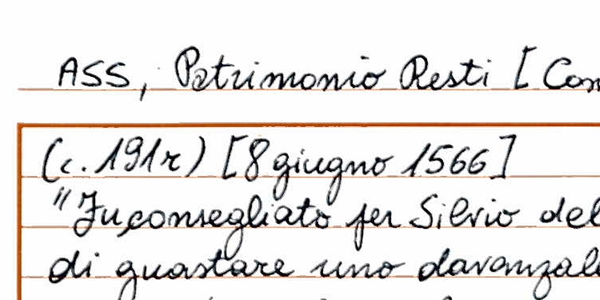 ASS, Patrimonio Resti [Con
(c. 191r) [8 giugno 1566]
"Fu consegliato per Silvio del
di guastare uno davanzale